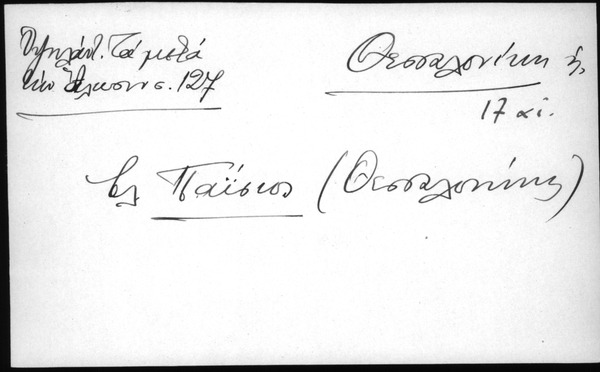 Ὑψηλάντ. Τά μετά
τήν Ἅλωσιν σ. 127
Θεσσαλονίκη
17 αἰ.
βλ Παΐσιος (Θεσσαλονίκης)